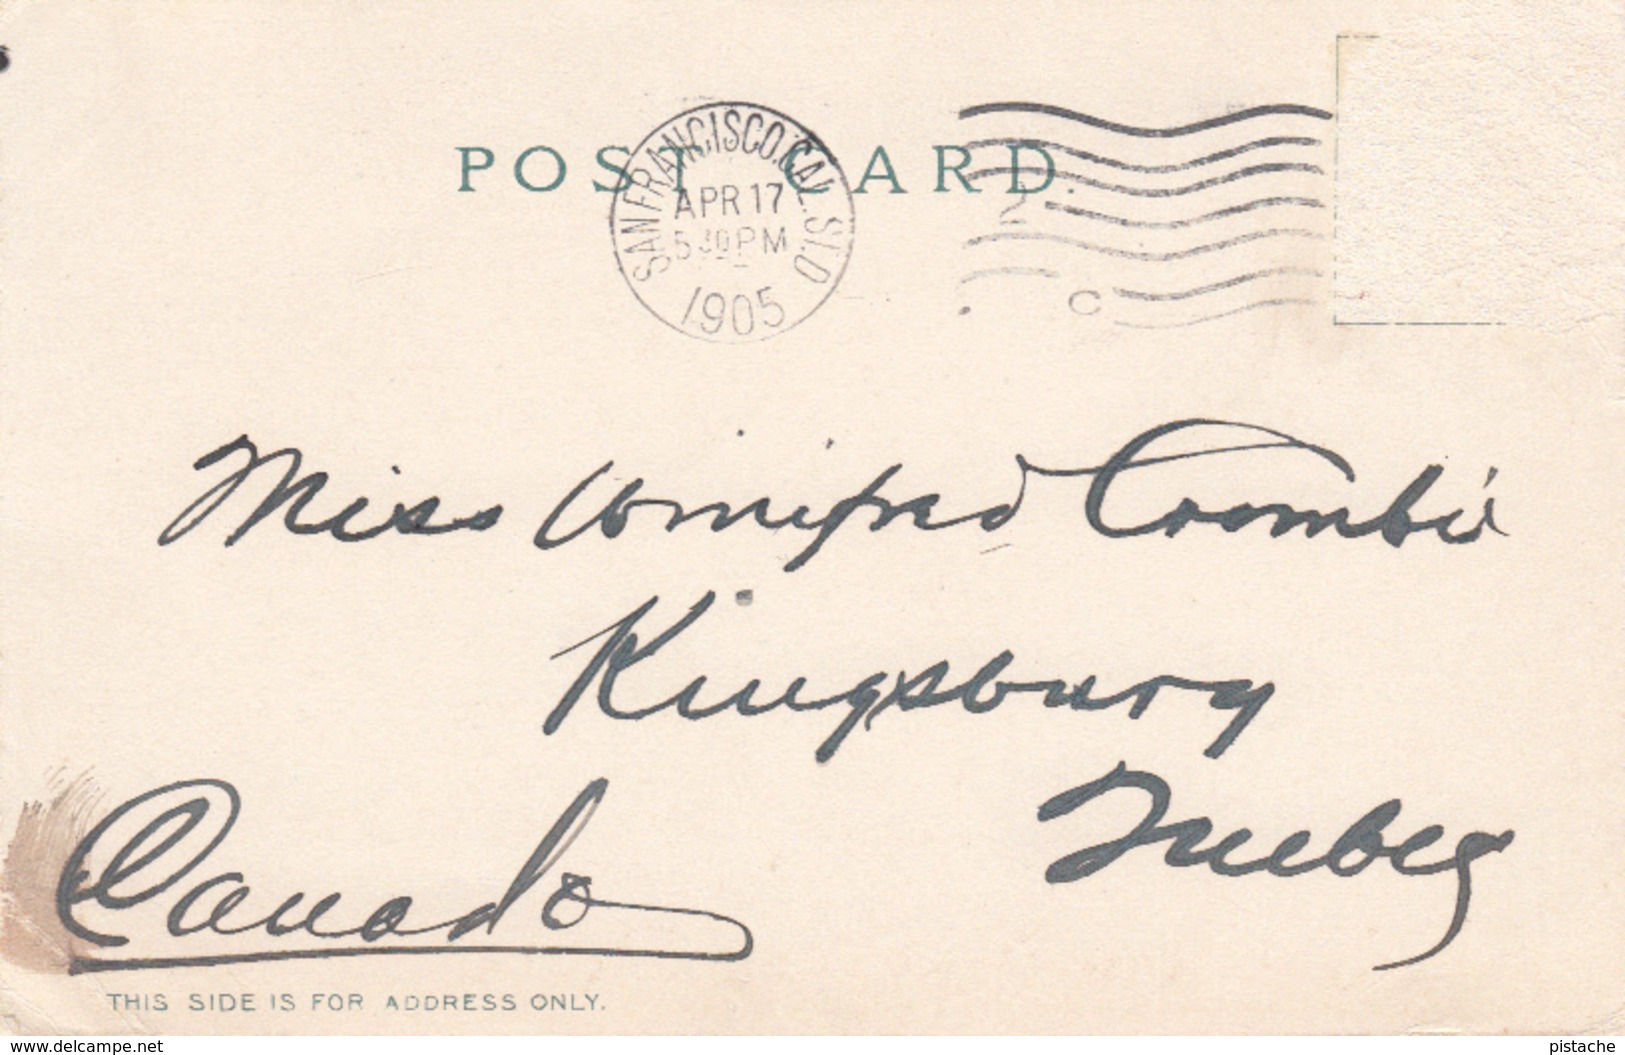 POST CARD
SAN FRANCISCO. CAL. ST. D
APR 17
5 30 PM
1905
2
C
Miss Winifred Crombie
Kingsbury
Quebec
Canada
THIS SIDE IS FOR ADDRESS ONLY.
www.delcampe.net
pistache